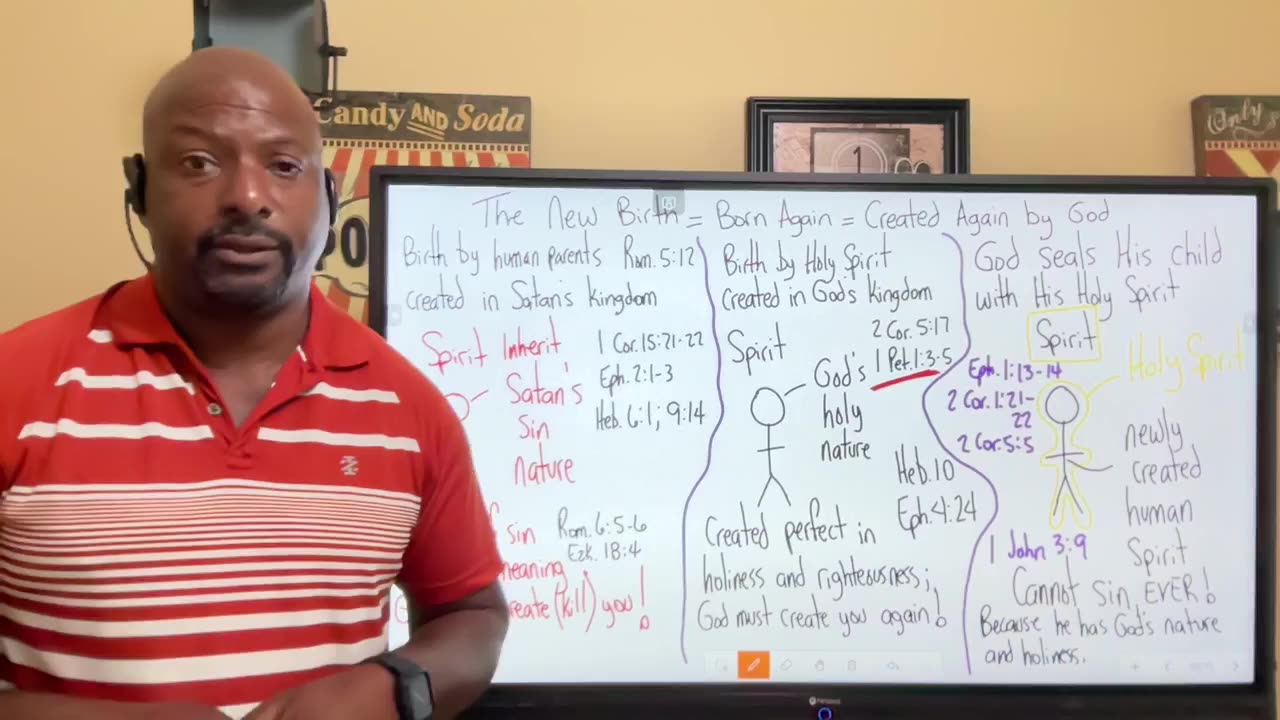 Candy AND Soda
PO
1
Only
The New Birth = Born Again = Created Again by God
Birth by human parents Rom. 5:12
created in Satan's kingdom
Spirit Inherit
1 Cor. 15:21-22
Satan's
Eph. 2:1-3
sin
Heb. 6:1; 9:14
nature
sin Rom. 6:5-6
Ezk. 18:4
meaning
create (kill) you!
Birth by Holy Spirit
created in God's kingdom
2 Cor. 5:17
Spirit
1 Pet. 1:3-5
God's
holy
nature
Heb. 10
Eph. 4:24
Created perfect in
holiness and righteousness;
God must create you again!
God seals His child
with His Holy Spirit
Spirit
Holy Spirit
Eph. 1:13-14
2 Cor. 1:21-
22
2 Cor. 5:5
newly
created
human
Spirit
1 John 3:9
Cannot Sin, EVER!
Because he has God's nature
and holiness.